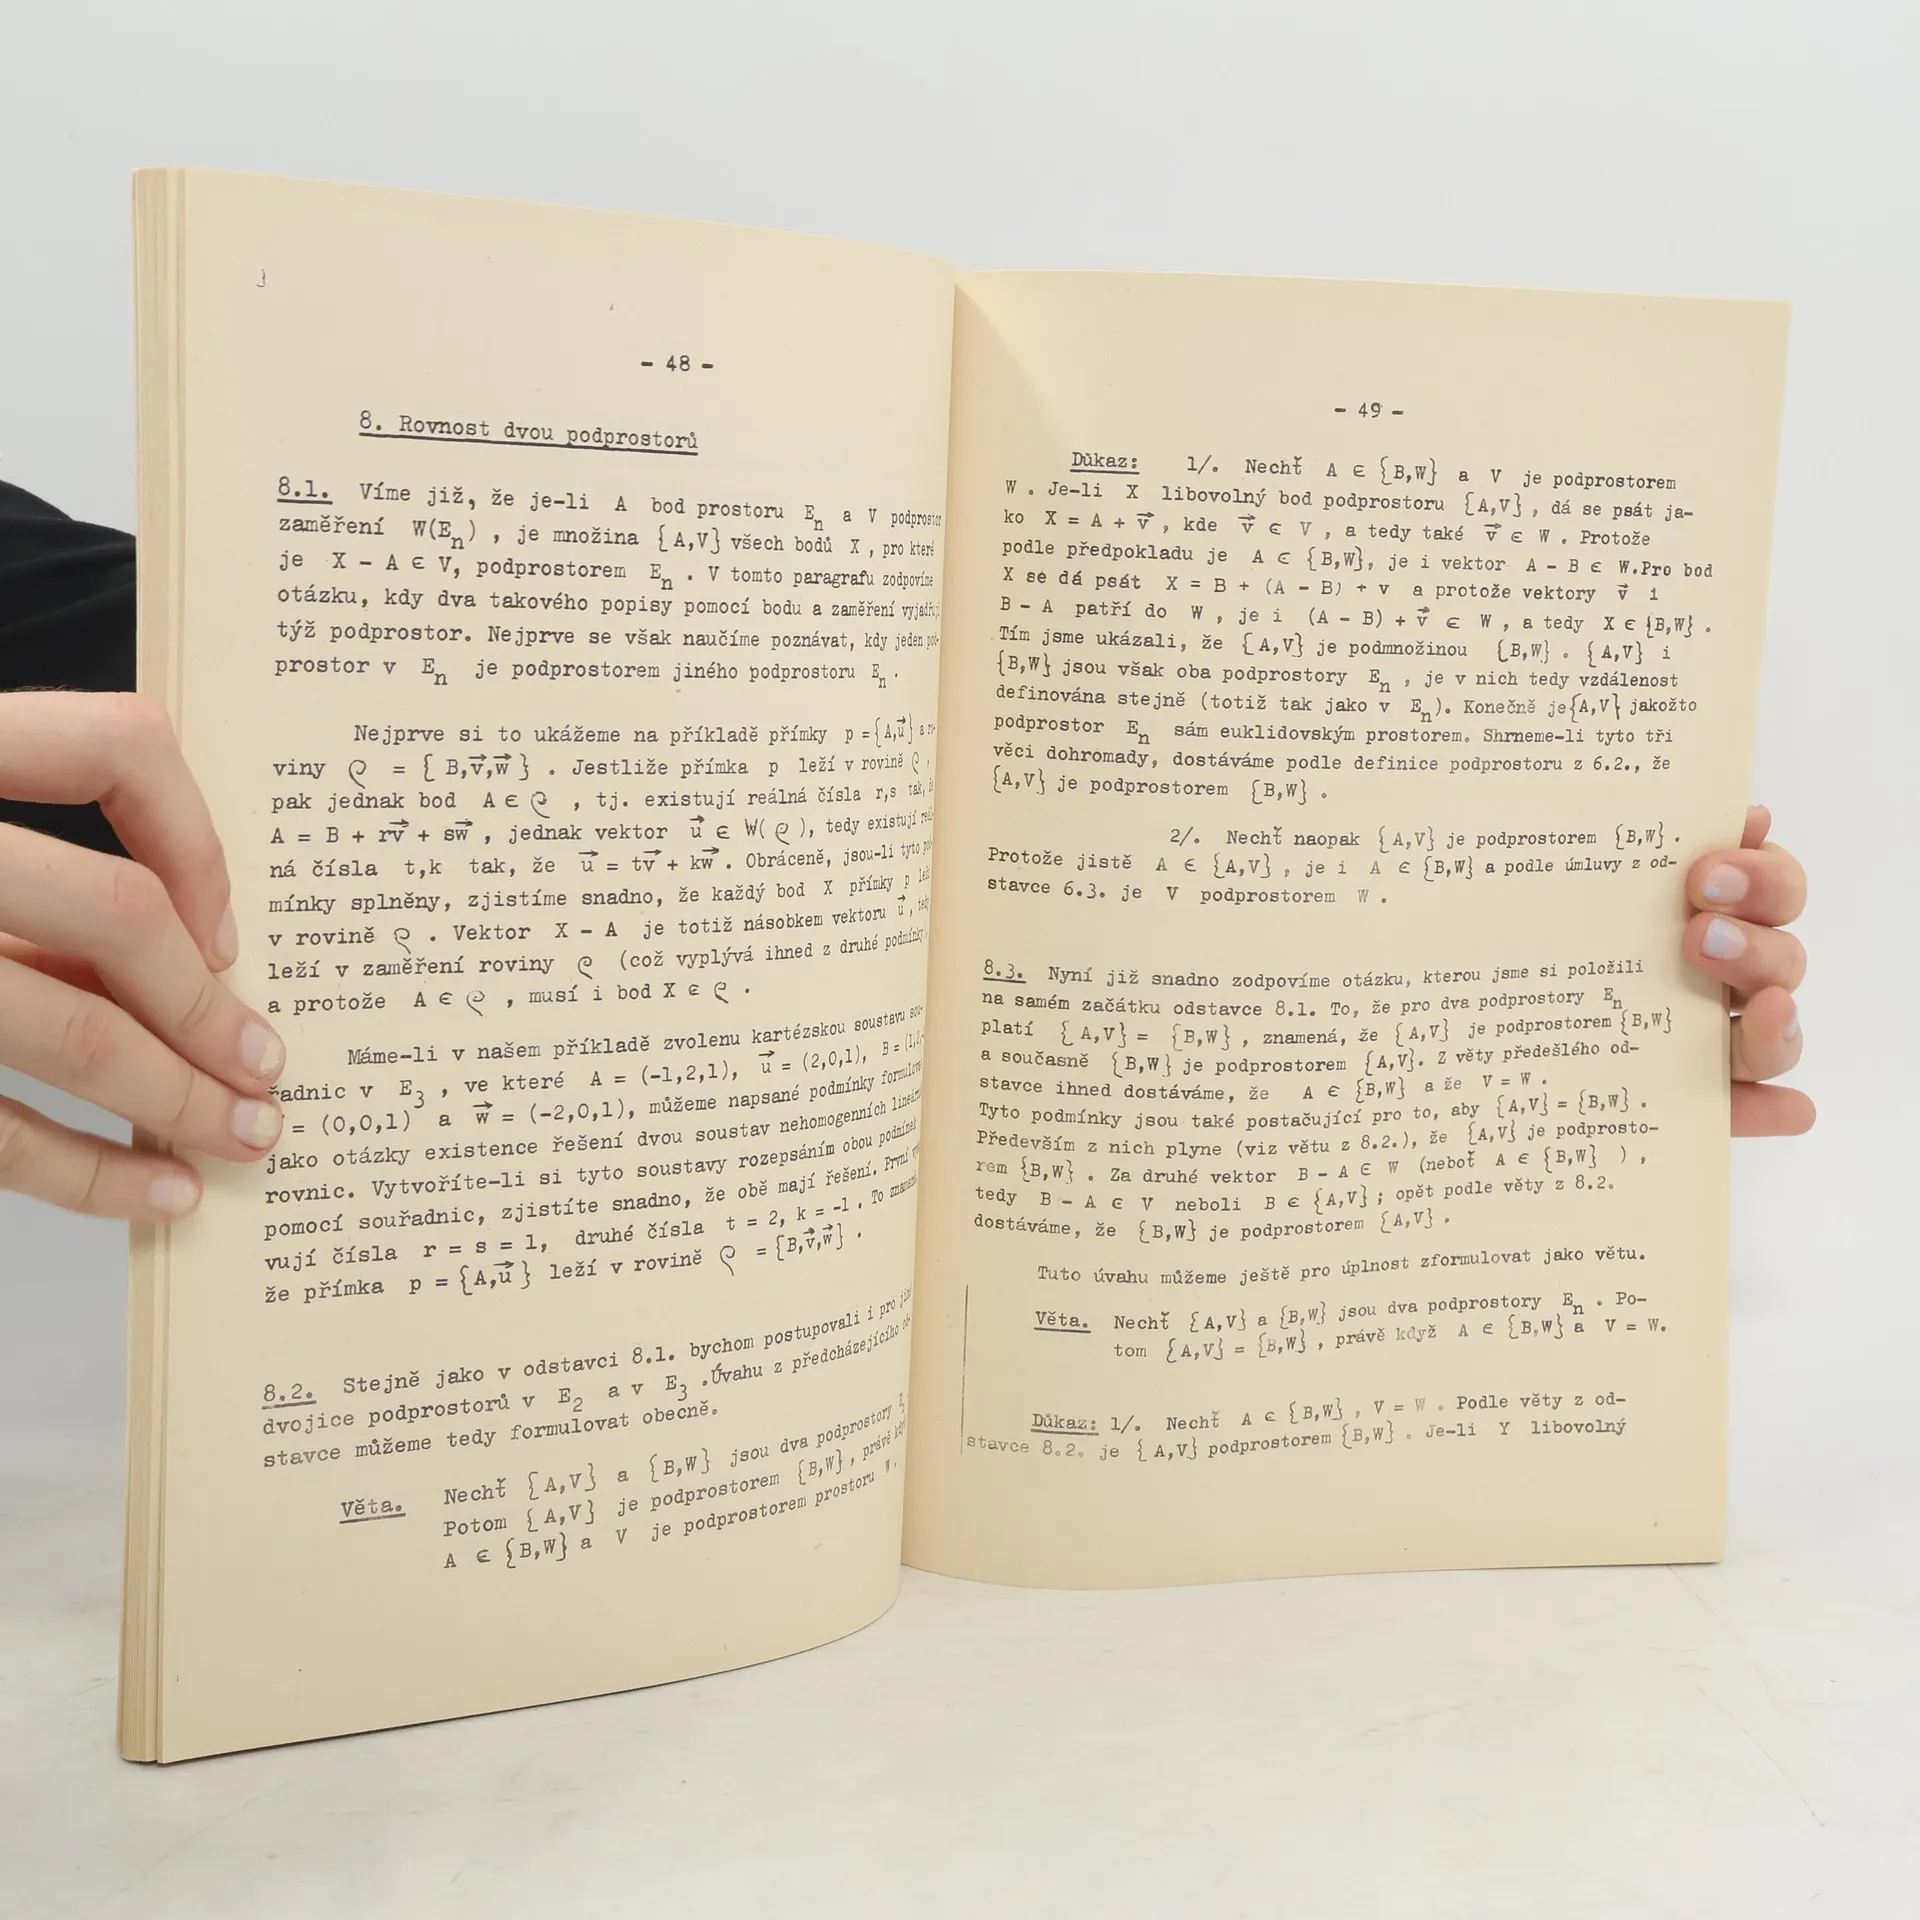 - 48 -
8. Rovnost dvou podprostorů
8.1. Víme již, že je-li A bod prostoru Eₙ a V podprostor
zaměření W(Eₙ) , je množina {A,V} všech bodů X , pro které
je X - A ∈ V, podprostorem Eₙ . V tomto paragrafu zodpovíme
otázku, kdy dva takového popisy pomocí bodu a zaměření vyjadřují
týž podprostor. Nejprve se však naučíme poznávat, kdy jeden pod-
prostor v Eₙ je podprostorem jiného podprostoru Eₙ .
Nejprve si to ukážeme na příkladě přímky p = {A,u⃗} a ro-
viny ρ = { B,v⃗,w⃗ } . Jestliže přímka p leží v rovině ρ ,
pak jednak bod A ∈ ρ , tj. existují reálná čísla r,s tak, že
A = B + rv⃗ + sw⃗ , jednak vektor u⃗ ∈ W( ρ ), tedy existují reál-
ná čísla t,k tak, že u⃗ = tv⃗ + kw⃗ . Obráceně, jsou-li tyto pod-
mínky splněny, zjistíme snadno, že každý bod X přímky p leží
v rovině ρ . Vektor X - A je totiž násobkem vektoru u⃗ , tedy
leží v zaměření roviny ρ (což vyplývá ihned z druhé podmínky)
a protože A ∈ ρ , musí i bod X ∈ ρ .
Máme-li v našem příkladě zvolenu kartézskou soustavu sou-
řadnic v E₃ , ve které A = (-1,2,1), u⃗ = (2,0,1), B = (1,2,
= (0,0,1) a w⃗ = (-2,0,1), můžeme napsané podmínky formulovat
jako otázky existence řešení dvou soustav nehomogenních lineárních
rovnic. Vytvoříte-li si tyto soustavy rozepsáním obou podmínek
pomocí souřadnic, zjistíte snadno, že obě mají řešení. První
vují čísla r = s = 1, druhé čísla t = 2, k = -1 . To znamená,
že přímka p = {A,u⃗ } leží v rovině ρ = {B,v⃗,w⃗} .
8.2. Stejně jako v odstavci 8.1. bychom postupovali i pro jiné
dvojice podprostorů v E₂ a v E₃ .Úvahu z předcházejícího od-
stavce můžeme tedy formulovat obecně.
Věta. Nechť {A,V} a {B,W} jsou dva podprostory Eₙ
Potom {A,V} je podprostorem {B,W}, právě když
A ∈ {B,W} a V je podprostorem prostoru W.
- 49 -
Důkaz: 1/. Nechť A ∈ {B,W} a V je podprostorem
W . Je-li X libovolný bod podprostoru {A,V}, dá se psát ja-
ko X = A + v⃗ , kde v⃗ ∈ V , a tedy také v⃗ ∈ W . Protože
podle předpokladu je A ∈ {B,W}, je i vektor A - B ∈ W.Pro bod
X se dá psát X = B + (A - B) + v a protože vektory v⃗ i
B - A patří do W , je i (A - B) + v⃗ ∈ W , a tedy X ∈ {B,W} .
Tím jsme ukázali, že {A,V} je podmnožinou {B,W} . {A,V} i
{B,W} jsou však oba podprostory Eₙ , je v nich tedy vzdálenost
definována stejně (totiž tak jako v Eₙ). Konečně je{A,V} jakožto
podprostor Eₙ sám euklidovským prostorem. Shrneme-li tyto tři
věci dohromady, dostáváme podle definice podprostoru z 6.2., že
{A,V} je podprostorem {B,W} .
2/. Nechť naopak {A,V} je podprostorem {B,W} .
Protože jistě A ∈ {A,V} , je i A ∈ {B,W} a podle úmluvy z od-
stavce 6.3. je V podprostorem W .
8.3. Nyní již snadno zodpovíme otázku, kterou jsme si položili
na samém začátku odstavce 8.1. To, že pro dva podprostory Eₙ
platí {A,V} = {B,W} , znamená, že {A,V} je podprostorem {B,W}
a současně {B,W} je podprostorem {A,V}. Z věty předešlého od-
stavce ihned dostáváme, že A ∈ {B,W} a že V = W .
Tyto podmínky jsou také postačující pro to, aby {A,V} = {B,W} .
Především z nich plyne (viz větu z 8.2.), že {A,V} je podprosto-
rem {B,W} . Za druhé vektor B - A ∈ W (neboť A ∈ {B,W} ) ,
tedy B - A ∈ V neboli B ∈ {A,V} ; opět podle věty z 8.2.
dostáváme, že {B,W} je podprostorem {A,V} .
Tuto úvahu můžeme ještě pro úplnost zformulovat jako větu.
Věta. Nechť {A,V} a {B,W} jsou dva podprostory Eₙ . Po-
tom {A,V} = {B,W} , právě když A ∈ {B,W} a V = W.
Důkaz: 1/. Nechť A ∈ {B,W} , V = W . Podle věty z od-
stavce 8.2. je {A,V} podprostorem {B,W} . Je-li Y libovolný